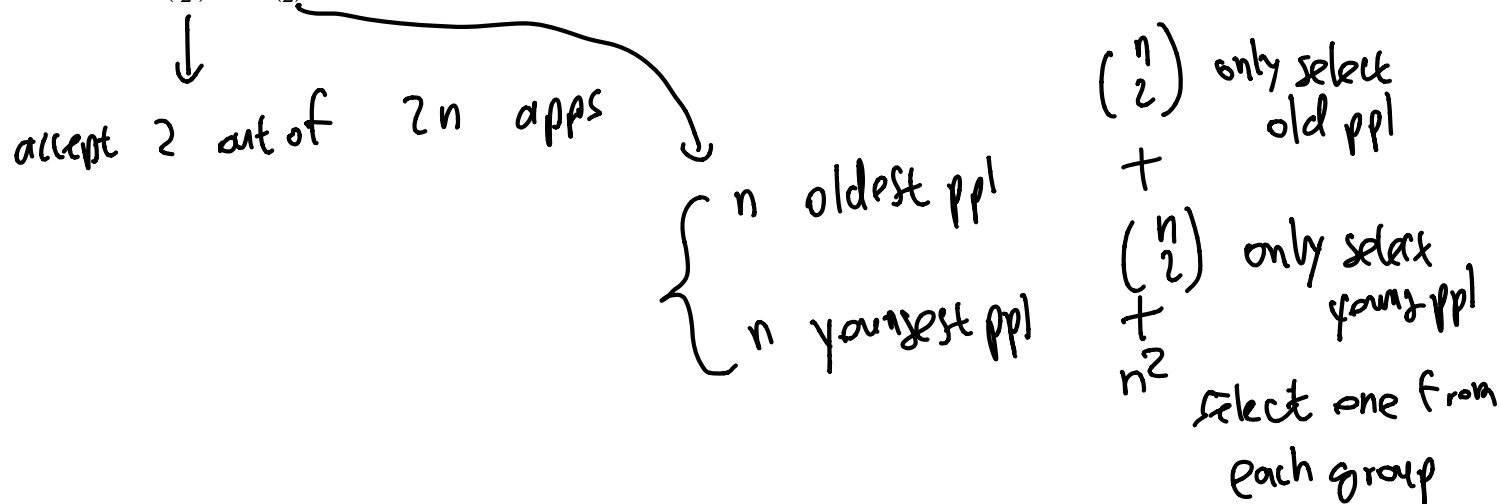 accept 2 out of 2n apps
n oldest ppl
n youngest ppl
(n 2) only select
old ppl
+
(n 2) only select
young ppl
+
n²
select one from
each group